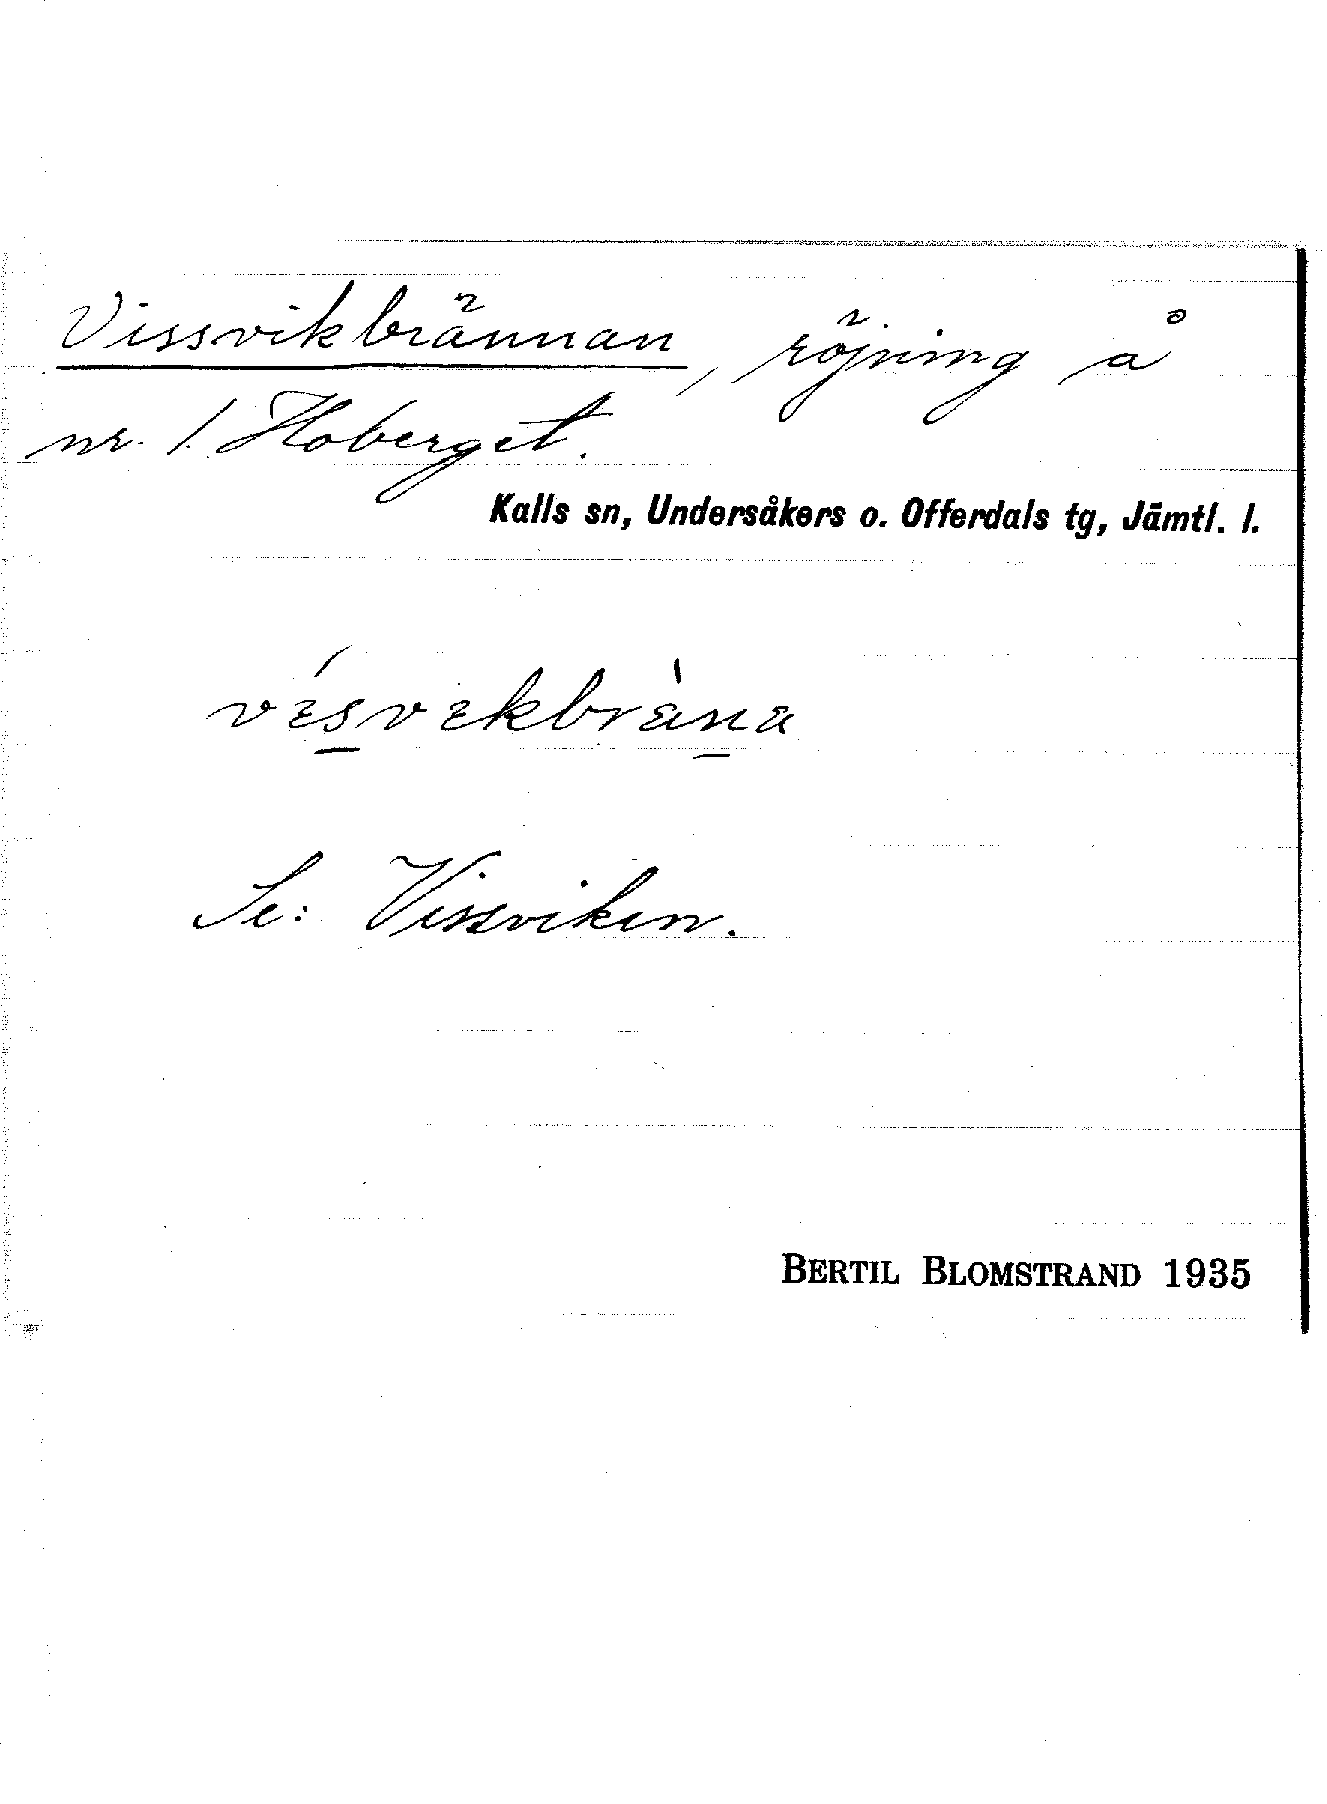 Vissvikbrännan, röjning å
nr. 1 Hoberget.
Kalls sn, Undersåkers o. Offerdals tg, Jämtl. l.
Se: Vissviken.
BERTIL BLOMSTRAND 1935